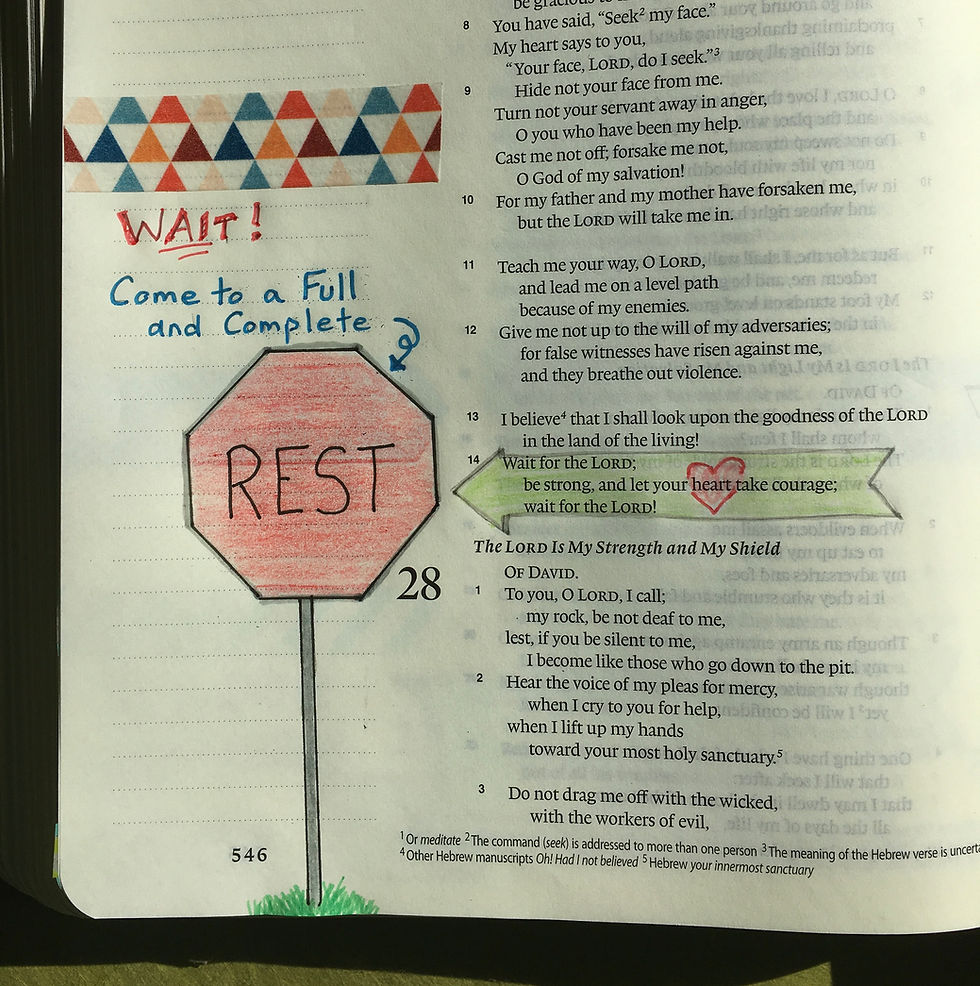 WAIT!
Come to a Full
and Complete
REST
be gracious to
8 You have said, “Seek² my face.”
My heart says to you,
“Your face, LORD, do I seek.”³
9 Hide not your face from me.
Turn not your servant away in anger,
O you who have been my help.
Cast me not off; forsake me not,
O God of my salvation!
10 For my father and my mother have forsaken me,
but the LORD will take me in.
11 Teach me your way, O LORD,
and lead me on a level path
because of my enemies.
12 Give me not up to the will of my adversaries;
for false witnesses have risen against me,
and they breathe out violence.
13 I believe⁴ that I shall look upon the goodness of the LORD
in the land of the living!
14 Wait for the LORD;
be strong, and let your heart take courage;
wait for the LORD!
The LORD Is My Strength and My Shield
28 OF DAVID.
1 To you, O LORD, I call;
my rock, be not deaf to me,
lest, if you be silent to me,
I become like those who go down to the pit.
2 Hear the voice of my pleas for mercy,
when I cry to you for help,
when I lift up my hands
toward your most holy sanctuary.⁵
3 Do not drag me off with the wicked,
with the workers of evil,
¹ Or meditate ² The command (seek) is addressed to more than one person ³ The meaning of the Hebrew verse is
⁴ Other Hebrew manuscripts Oh! Had I not believed ⁵ Hebrew your innermost sanctuary
546